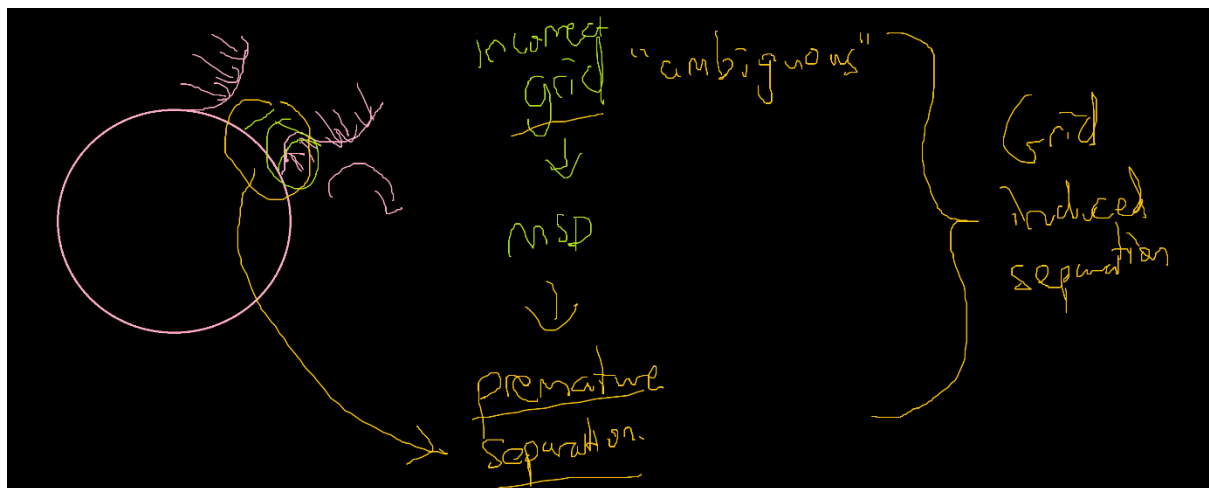 Incorrect
grid
"ambiguous"
MSD
premature
separation.
Grid
Induced
separation